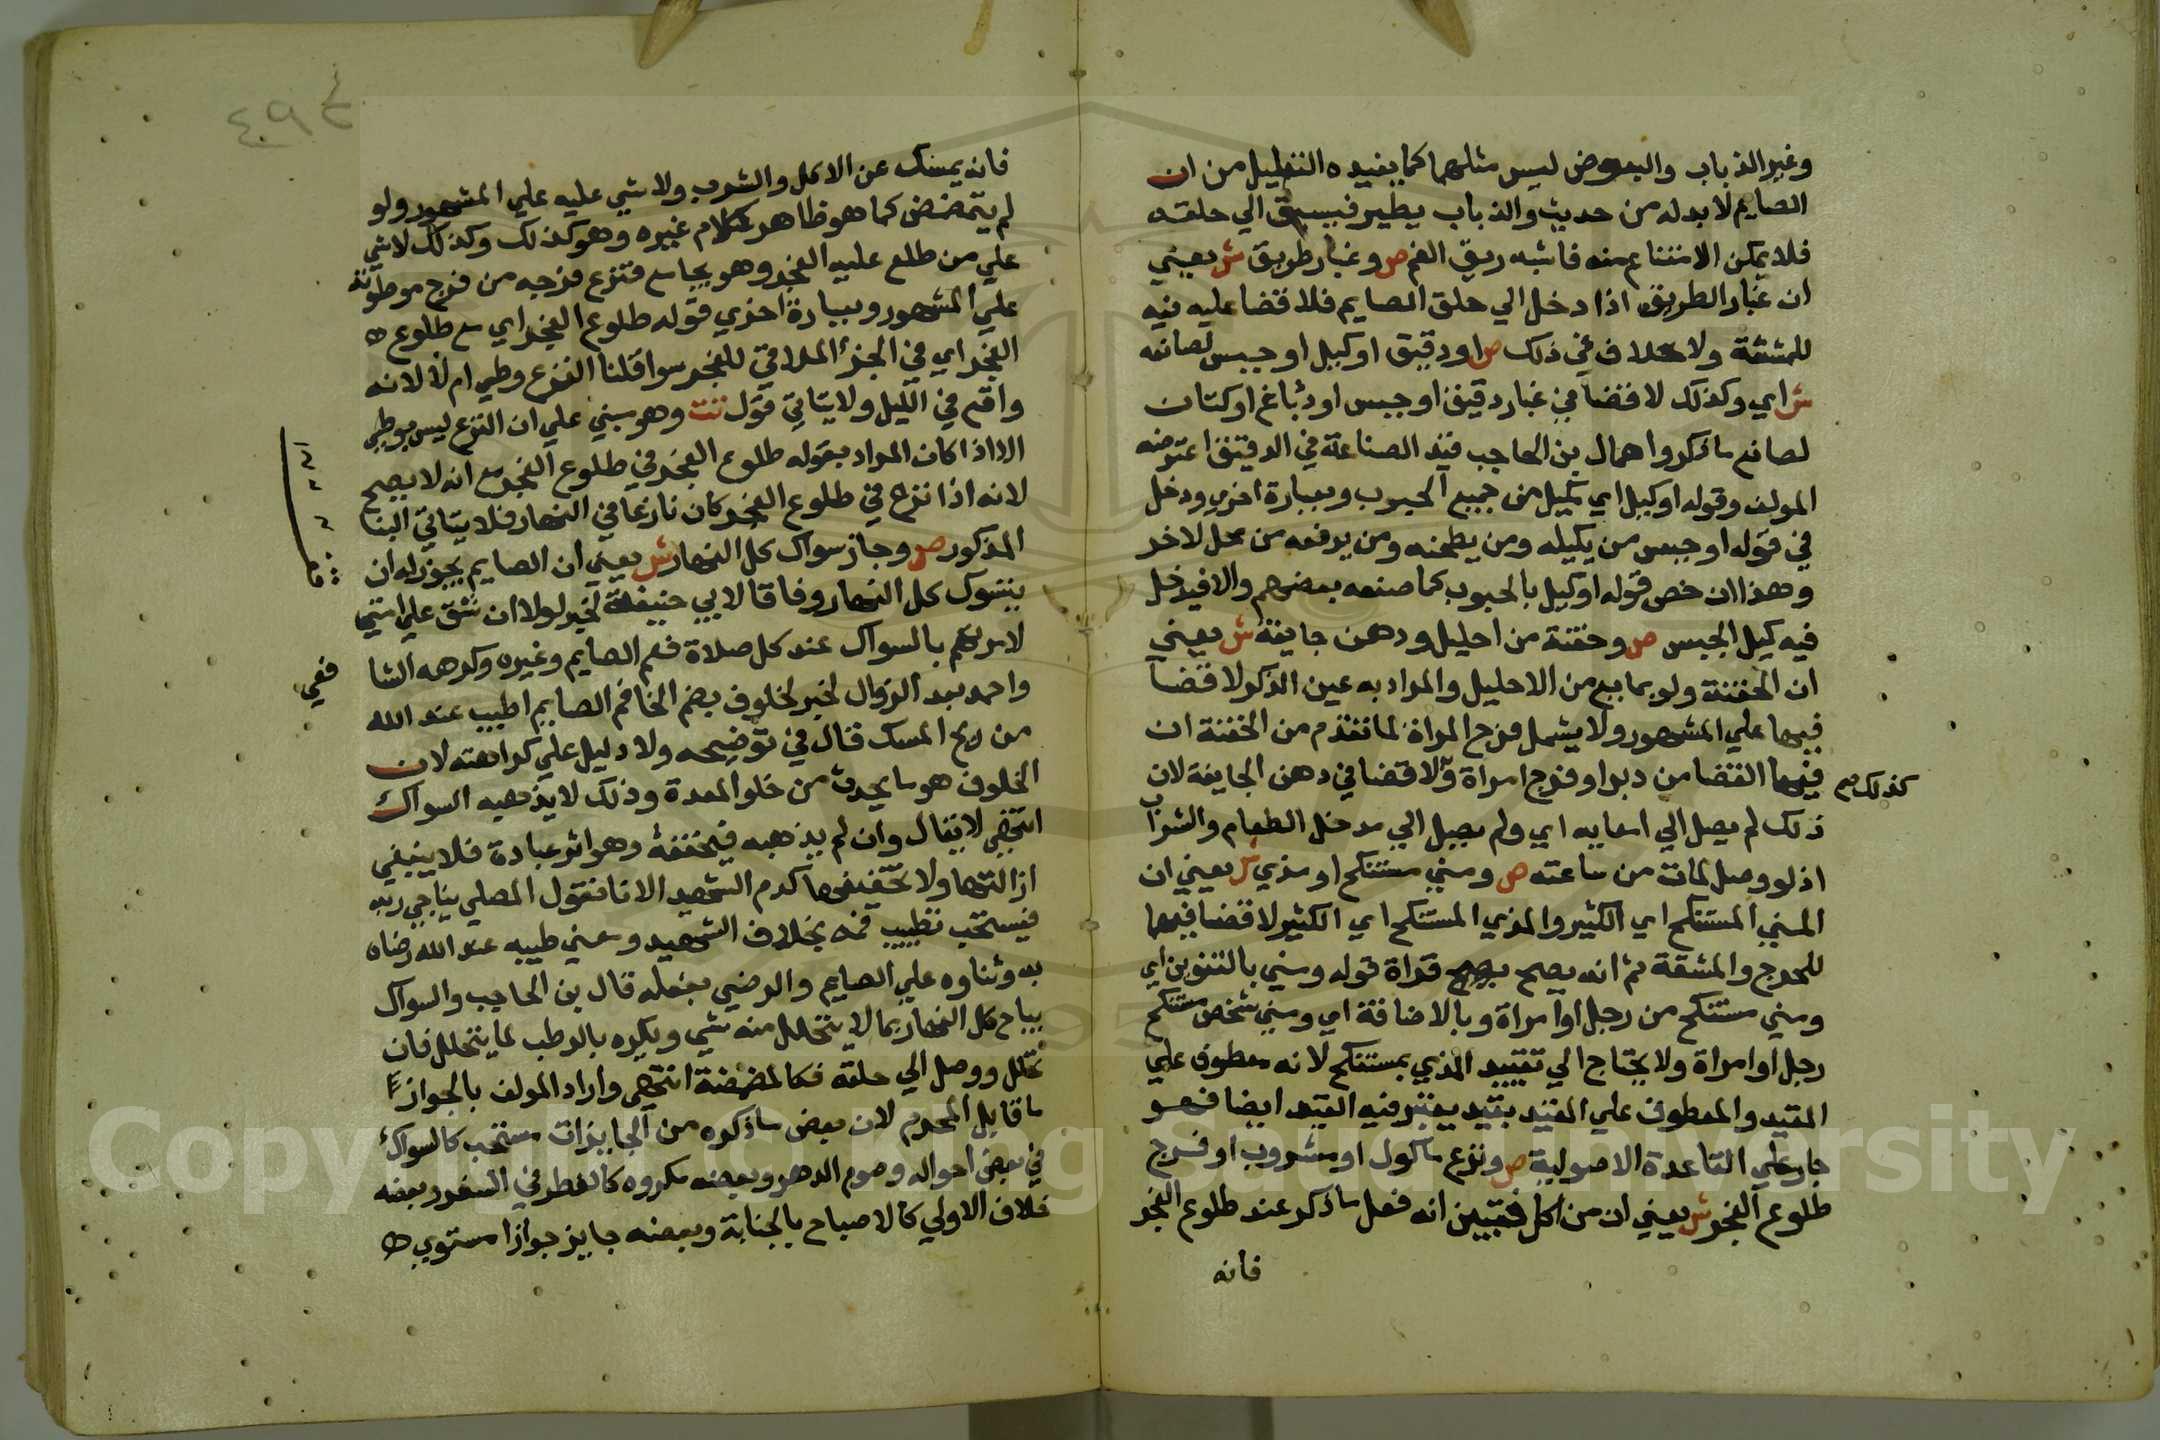 وغير الذباب والبعوض ليس مثلهما كما يفيده التعليل من ان
الصايم لا بد له من حديث والذباب يطير فيسبق الي حلقه
فلا يمكن الامتناع منه فاشبه ريق الفم ص وغبار طريق ش يعني
ان غبار الطريق اذا دخل الي حلق الصايم فلا قضا عليه فيه
للمشقة ولا خلاف في ذلك ص او دقيق او كيل او جبس لصانعه
ش اي وكذلك لا قضا في غبار دقيق او جبس او دباغ او كتان
لصانع ما ذكر واهمال بن الحاجب قيد الصناعة في الدقيق اعترضه
المولف وقوله او كيل اي كيل من جميع الحبوب وبعبارة اخري ودخل
في قوله او جبس من يكيله ومن يطحنه ومن يرفعه من محل لاخر
وهذا ان خص قوله او كيل بالحبوب كما صنعه بعضهم والا فيدخل
فيه كيل الجبس ص وحقنة من احليل ودهن جايفة ش يعني
ان الحقنة ولو بمايع من الاحليل والمراد به عين الذكر لا قضا
فيها علي المشهور ولا يشمل فرج المراة لما تقدم من الحقنة ان
فيها القضا من دبر او فرج امراة ولا قضا في دهن الجايفة لان
كذلك صح
ذلك لم يصل الي امعايه اي ولم يصل الي مدخل الطعام والشراب
اذ لو وصل لمات من ساعته ص ومني مستنكح او مذي ش يعني ان
المني المستنكح اي الكثير والمذي المستنكح اي الكثير لا قضا فيهما
للحرج والمشقة ثم انه يصح قراة قوله ومني بالتنوين اي
ومني مستنكح من رجل او امراة وبالاضافة اي ومني شخص مستنكح
رجل او امراة ولا يحتاج الي تقييد المذي بمستنكح لانه معطوف علي
المقيد والمعطوف علي المقيد بقيد يعتبر فيه القيد ايضا فهو
جار علي القاعدة الاصولية ص ونزع ماكول او مشروب او فرج
طلوع الفجر ش يعني ان من اكل فتبين انه فعل ما ذكر عند طلوع الفجر
فانه
فانه يمسك عن الاكل والشرب ولا شي عليه علي المشهور ولو
لم يتمضمض كما هو ظاهر كلام غيره وهو كذلك وكذلك لا شي
علي من طلع عليه الفجر وهو يجامع فنزع فرجه من فرج موطوئته
علي المشهور وبعبارة اخري قوله طلوع الفجر اي مع طلوع
الفجر اي في الجزء الملاقي للفجر سوا قلنا النزع وطي ام لا لانه
واقع في الليل ولا يتاتي قول تت وهو مبني علي ان النزع ليس بوطي
الا اذا كان المراد بقوله طلوع الفجر في طلوع الفجر مع انه لا يصح
لانه اذا نزع في طلوع الفجر كان نازعا في النهار فلا يتاتي البنا
المذكور ص وجاز سواك كل النهار ش يعني ان الصايم يجوز له ان
يتسوك كل النهار وفاقا لابي حنيفة لخبر لولا ان نشق علي امتي
لامرتهم بالسواك عند كل صلاة فعم الصايم وغيره وكرهه الشا
فعي
واحمد بعد الزوال لخبر لخلوف بضم الخا فم الصايم اطيب عند الله
من ريح المسك قال في توضيحه ولا دليل علي كراهته لان
الخلوف هو ما يحدث من خلو المعدة وذلك لا يذهبه السواك
انتهي لا يقال وان لم يذهبه فيخففه وهو اثر عبادة فلا ينبغي
ازالتها ولا تخفيفها كدم الشهيد الا نا نقول المصلي يناجي ربه
فيستحب تطييب فمه بخلاف الشهيد ومعني طيبه عند الله رضاه
به وثناوه علي الصايم والرضي بفعله قال بن الحاجب والسواك
يباح كل النهار بما لا يتحلل منه شي ويكره بالرطب لما يتحلل فان
تحلل ووصل الي حلقه فكالمضمضة انتهي واراد المولف بالجواز
ما قابل المحرم لان بعض ما ذكره من الجايزات مستحب كالسواك
في بعض احواله وصوم الدهر وبعضه مكروه كالفطر في السفر وبعضه
خلاف الاولي كالاصباح بالجنابة وبعضه جايز جوازا مستوي
Copyright © King Saud University